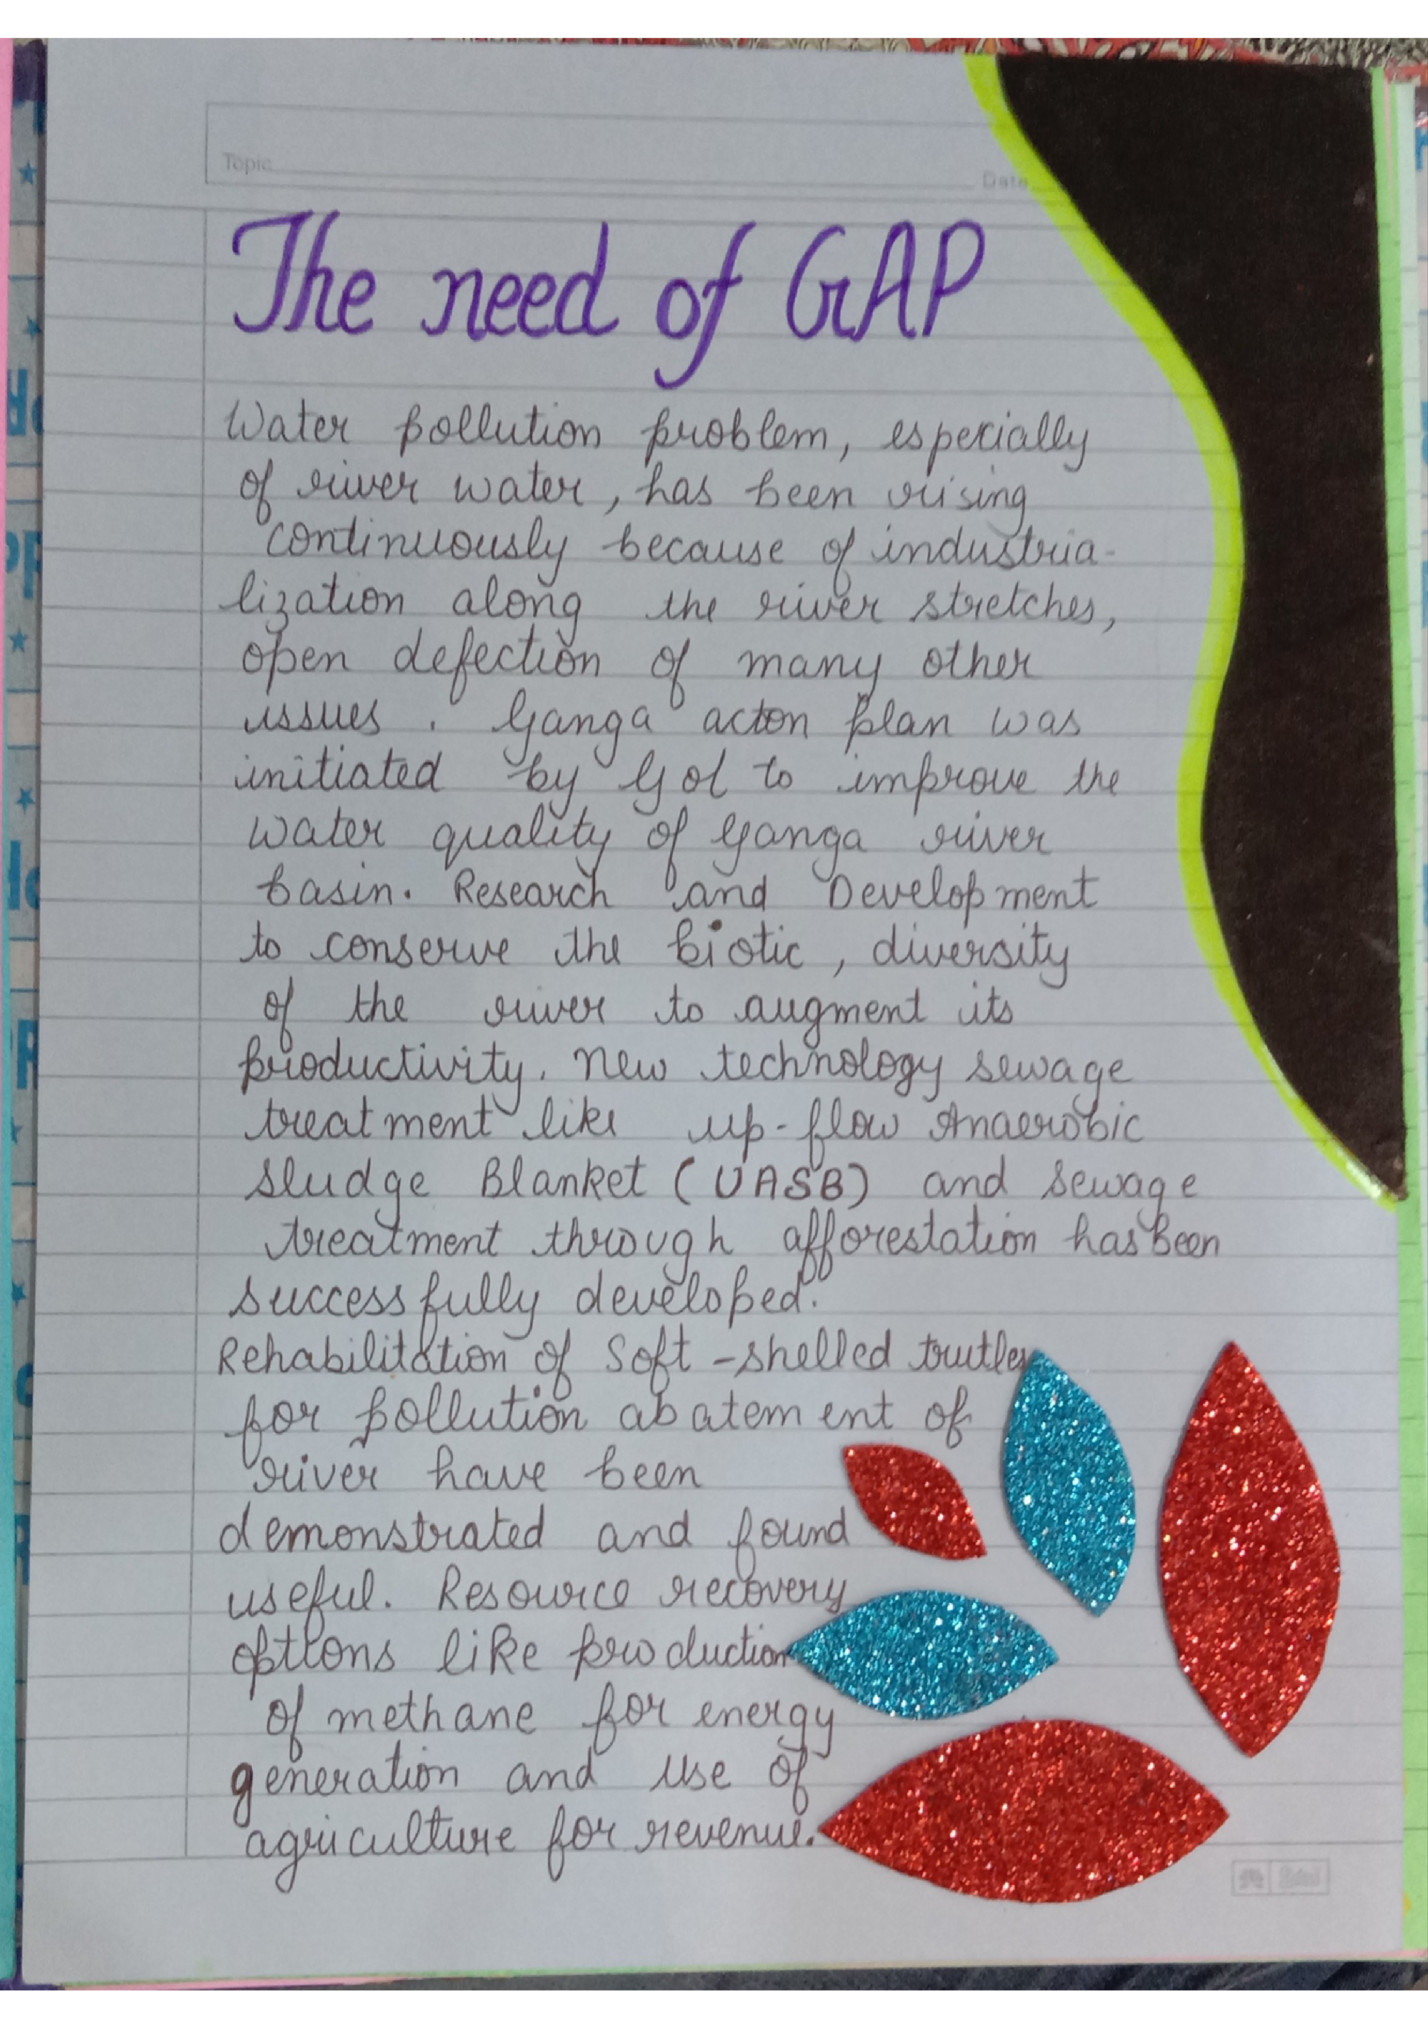 Topic
Date
The need of GAP
Water pollution problem, especially
of river water, has been rising
continuously because of industria-
lization along the river stretches,
open defection of many other
issues. Ganga acton plan was
initiated by GoI to improve the
water quality of Ganga river
basin. Research and Development
to conserve the biotic, diversity
of the river to augment its
productivity. New technology sewage
treatment like up-flow Anaerobic
Sludge Blanket (UASB) and sewage
treatment through afforestation has been
successfully developed.
Rehabilitation of soft-shelled trutles
for pollution abatement of
river have been
demonstrated and found
useful. Resource recovery
opttons like production
of methane for energy
generation and use of
agriculture for revenue.